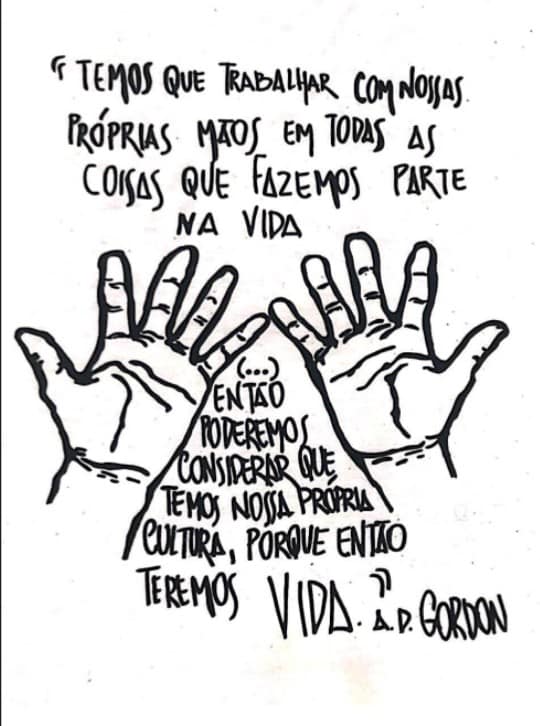 “TEMOS QUE TRABALHAR COM NOSSAS
PRÓPRIAS MÃOS EM TODAS AS
COISAS QUE FAZEMOS PARTE
NA VIDA
(...)
ENTÃO
PODEREMOS
CONSIDERAR QUE
TEMOS NOSSA PRÓPRIA
CULTURA, PORQUE ENTÃO
TEREMOS VIDA.” A.D. GORDON